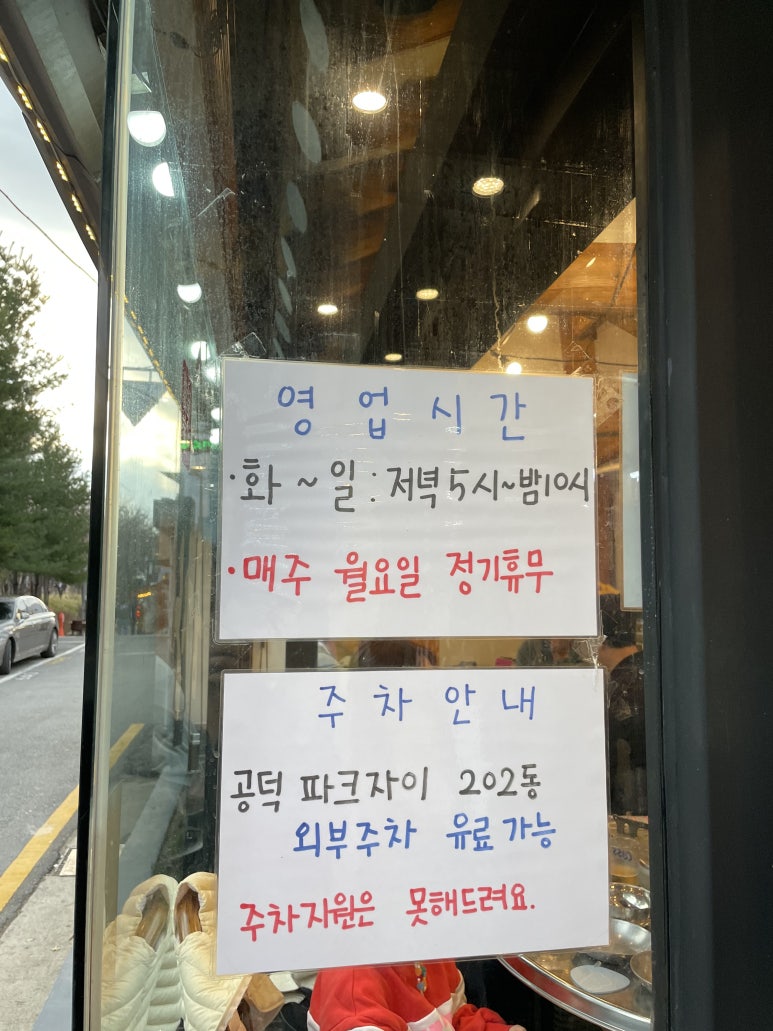 영업시간
·화~일: 저녁 5시~밤10시
·매주 월요일 정기휴무
주차안내
공덕 파크자이 202동
외부주차 유료 가능
주차지원은 못해드려요.